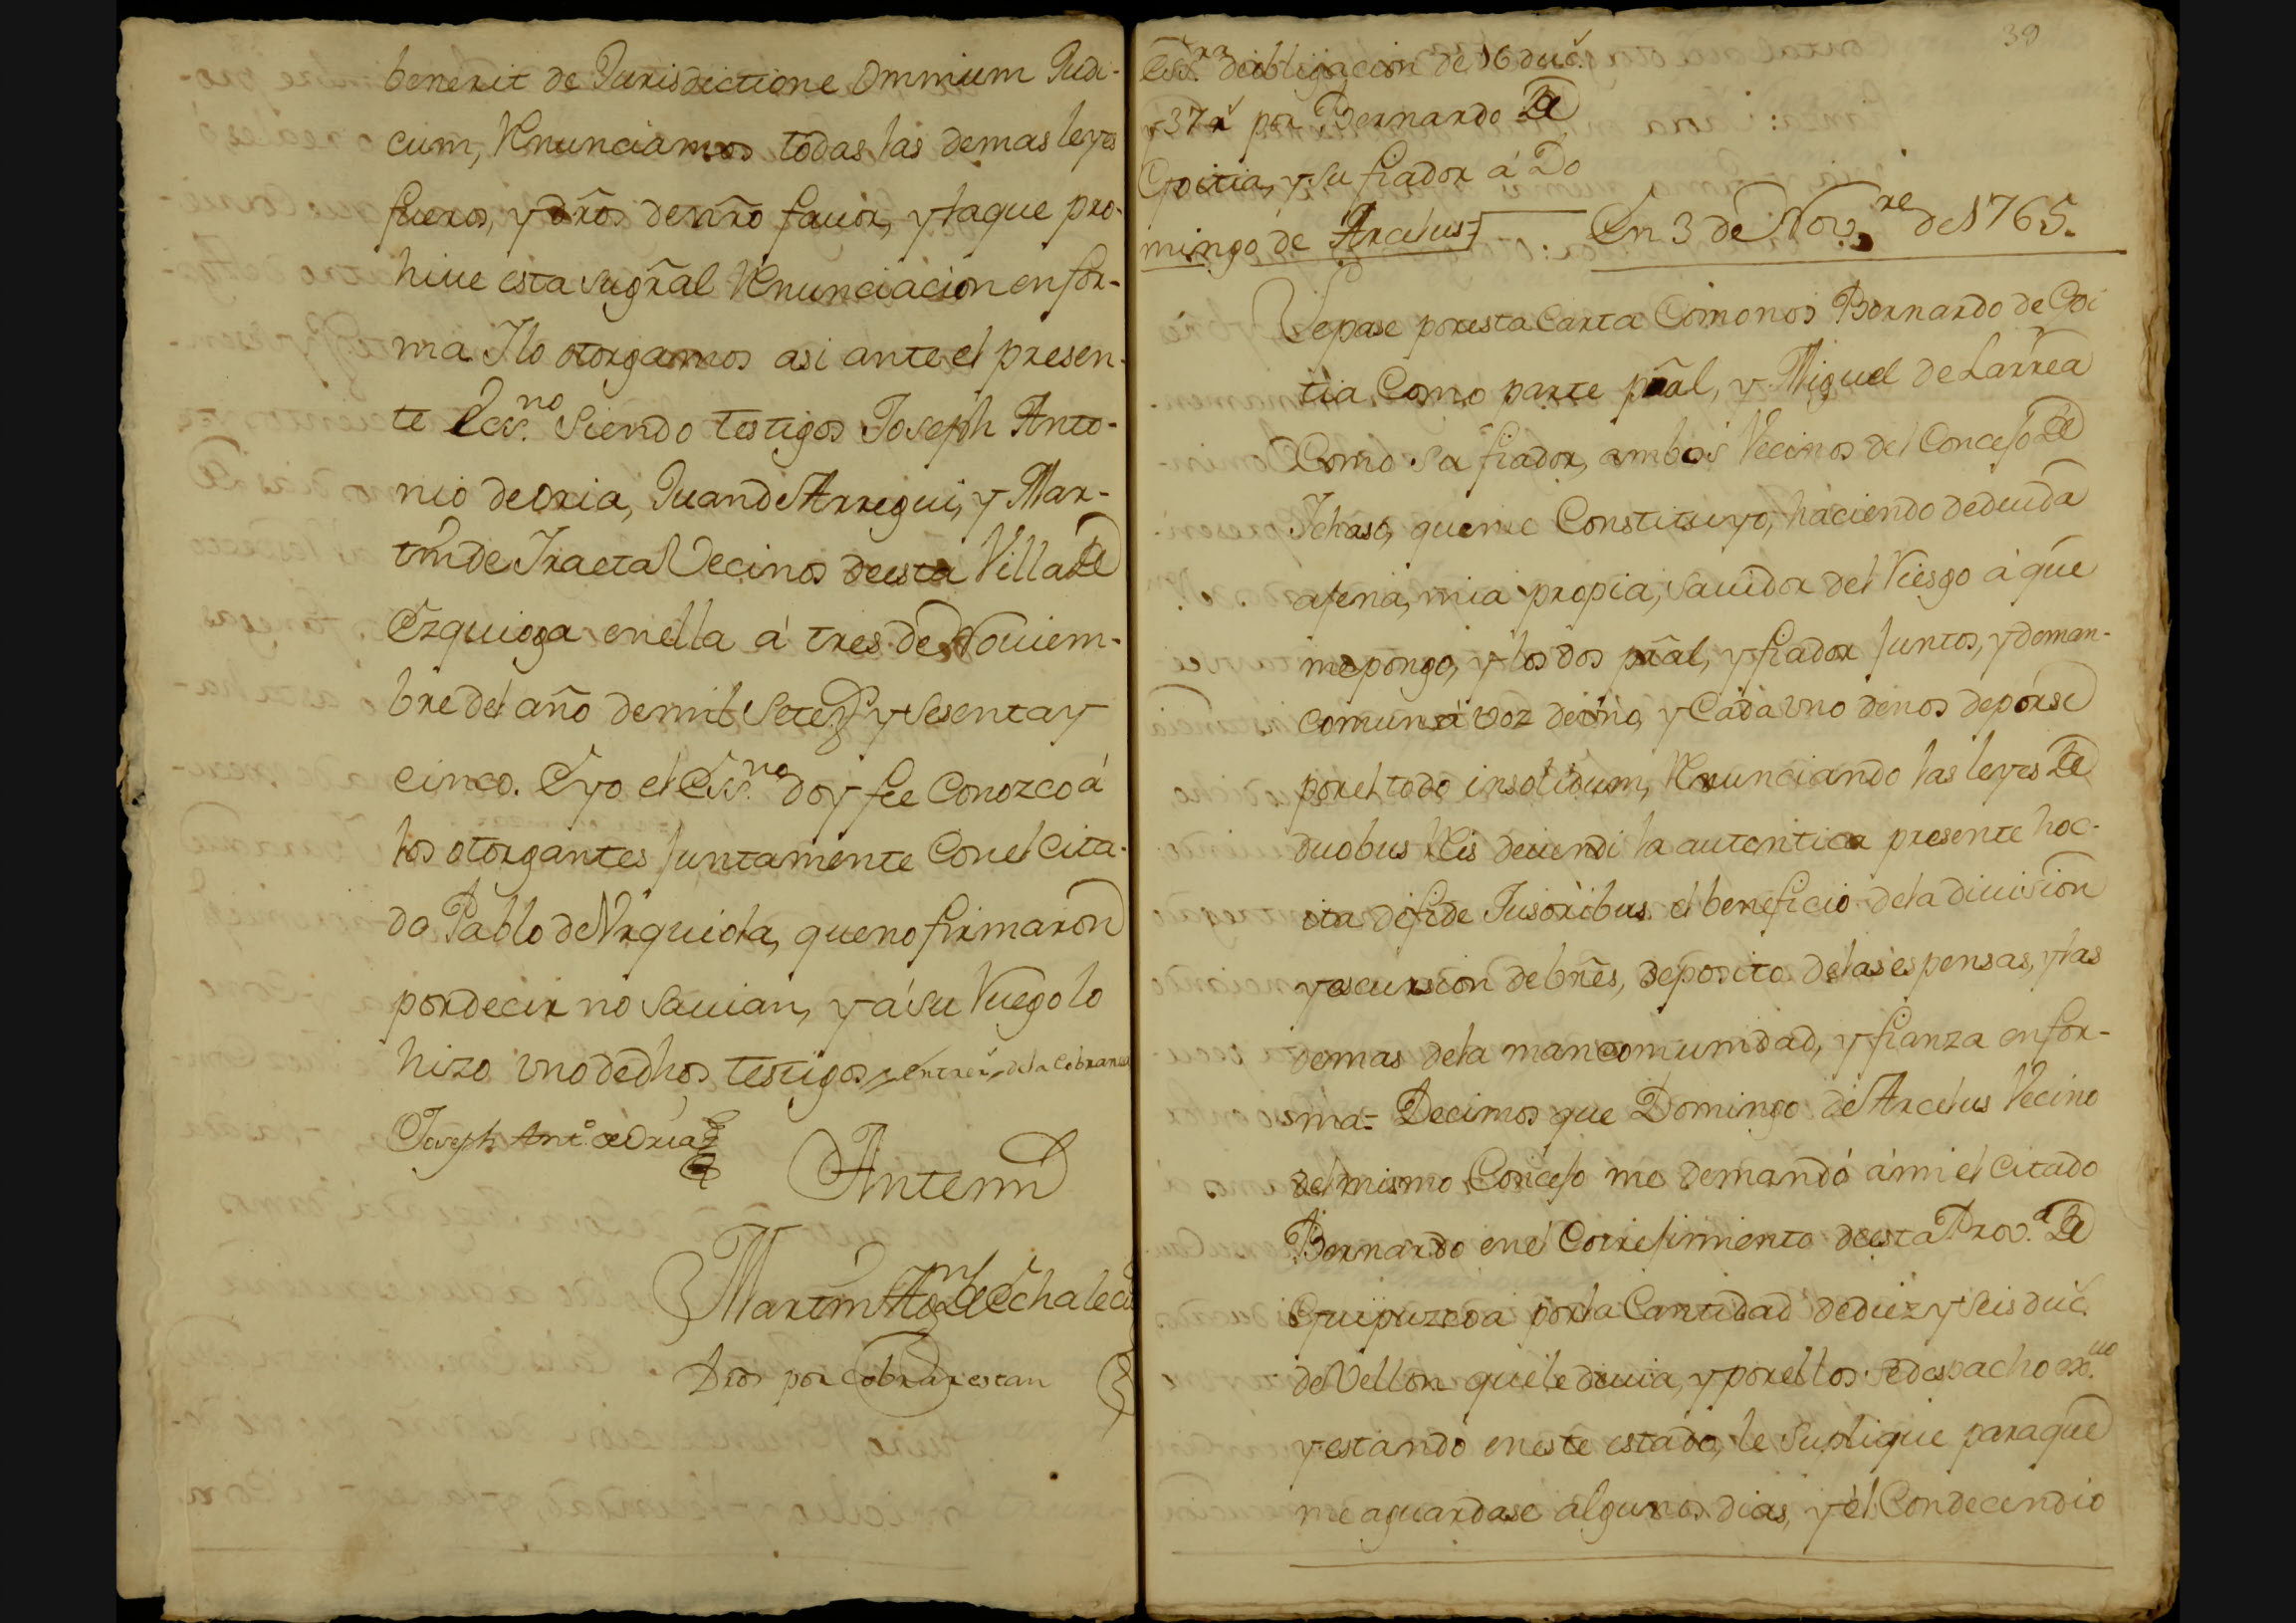 benerit de Jurisdictione Ommium Judi-
cum, Renunciamos todas las demas leyes
fueros, y dr̃os de nr̃o fauor, y la que pro-
hiue esta su gr̃al Renunciacion en for-
ma I lo otorgamos asi ante el presen-
te Ess.no Siendo testigos Joseph Anto-
nio de Oria, Juan de Arregui, y Mar-
tin de Iraeta Vecinos de esta Villa de
Ezquioga en ella á tres de Nouiem-
bre del año de mil Setez.s y Sesenta y
cinco. E yo el Ess.no doy fee Conozco á
los otorgantes Juntamente Con el Cita-
do Pablo de Vrquiola, que no firmaron
por decir no Sauian, y á su Ruego lo
hizo vno de dhos testigos entreŕ de la Cobranza
Joseph Ant.o de Oria
Antemi
Martin de Echale
Dr̃os por Cobrar estan
39
Ess.ra de obligacion de 16 duc.s
y 37 r.s por Bernardo de
Goitia, y su fiador á Do
mingo de Arcelus
En 3 de Nov.re de 1765.
Sepase por esta Carta Como nos Bernardo de Goi
tia Como parte pr̃al, y Miguel de Larrea
Como su fiador, ambos Vecinos del Concejo de
Ichaso, que me Constituyo, haciendo de deuda
ajena, mia propia, sauidor del Riesgo á que
me pongo, y los dos pr̃al, y fiador Juntos, y de man-
comun á voz de vno, y Cada vno de nos de por si
por el todo insolidum, Renunciando las leyes de
duobus Reis deuendi la autentica presente hoc-
ita de fide Jusoribus el beneficio de la diuision
y escursion de bn̄es, deposito de las espensas, y las
demas de la mancomunidad, y fianza en for-
ma= Decimos que Domingo de Arcelus Vecino
del mismo Concejo me demandó á mi el citado
Bernardo en el Correjimiento de esta Prov.a de
Guipuzcoa por la Cantidad de diez y seis duc.s
de Vellon que le deuia, y por ellos se despacho ex.uo
y estando en este estado, le Supliqué para que
me aguardase algunos dias, y él Condecendio